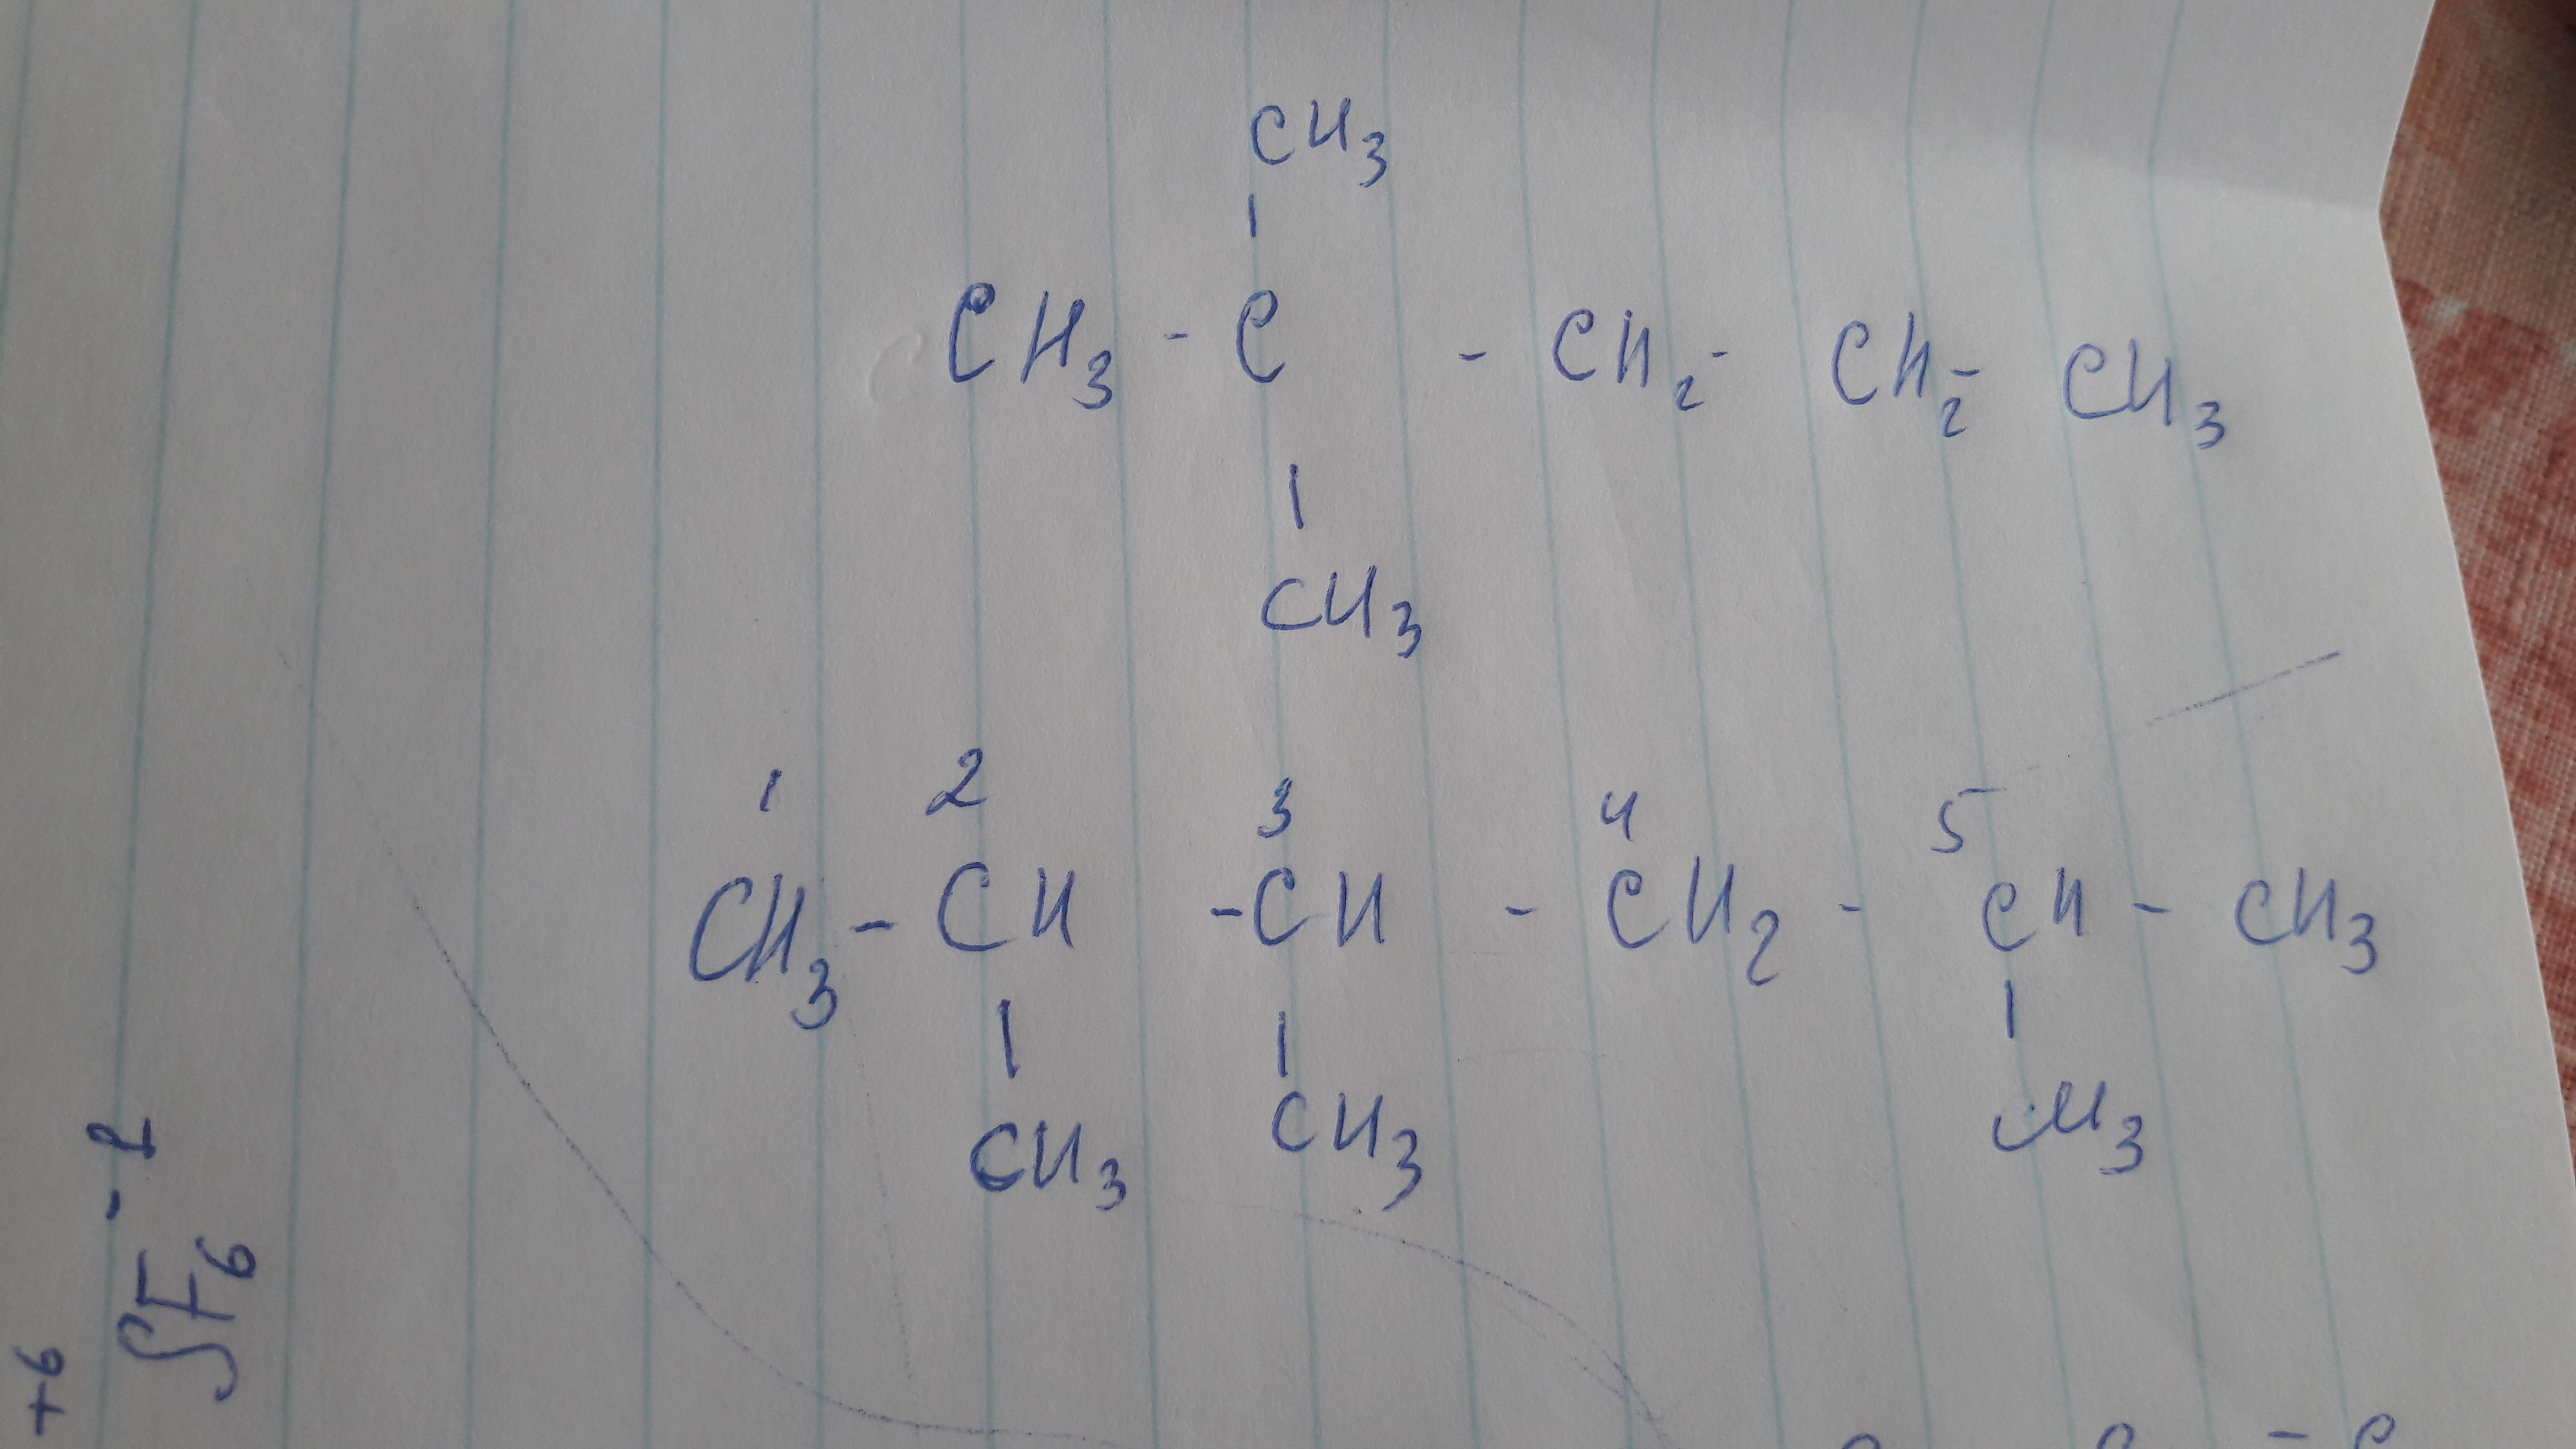 CH3
CH3 - C - CH2 - CH2 - CH3
CH3
1 2 3 4 5
CH3 - CH - CH - CH2 - CH - CH3
CH3 CH3 CH3
+6 -1
SF6